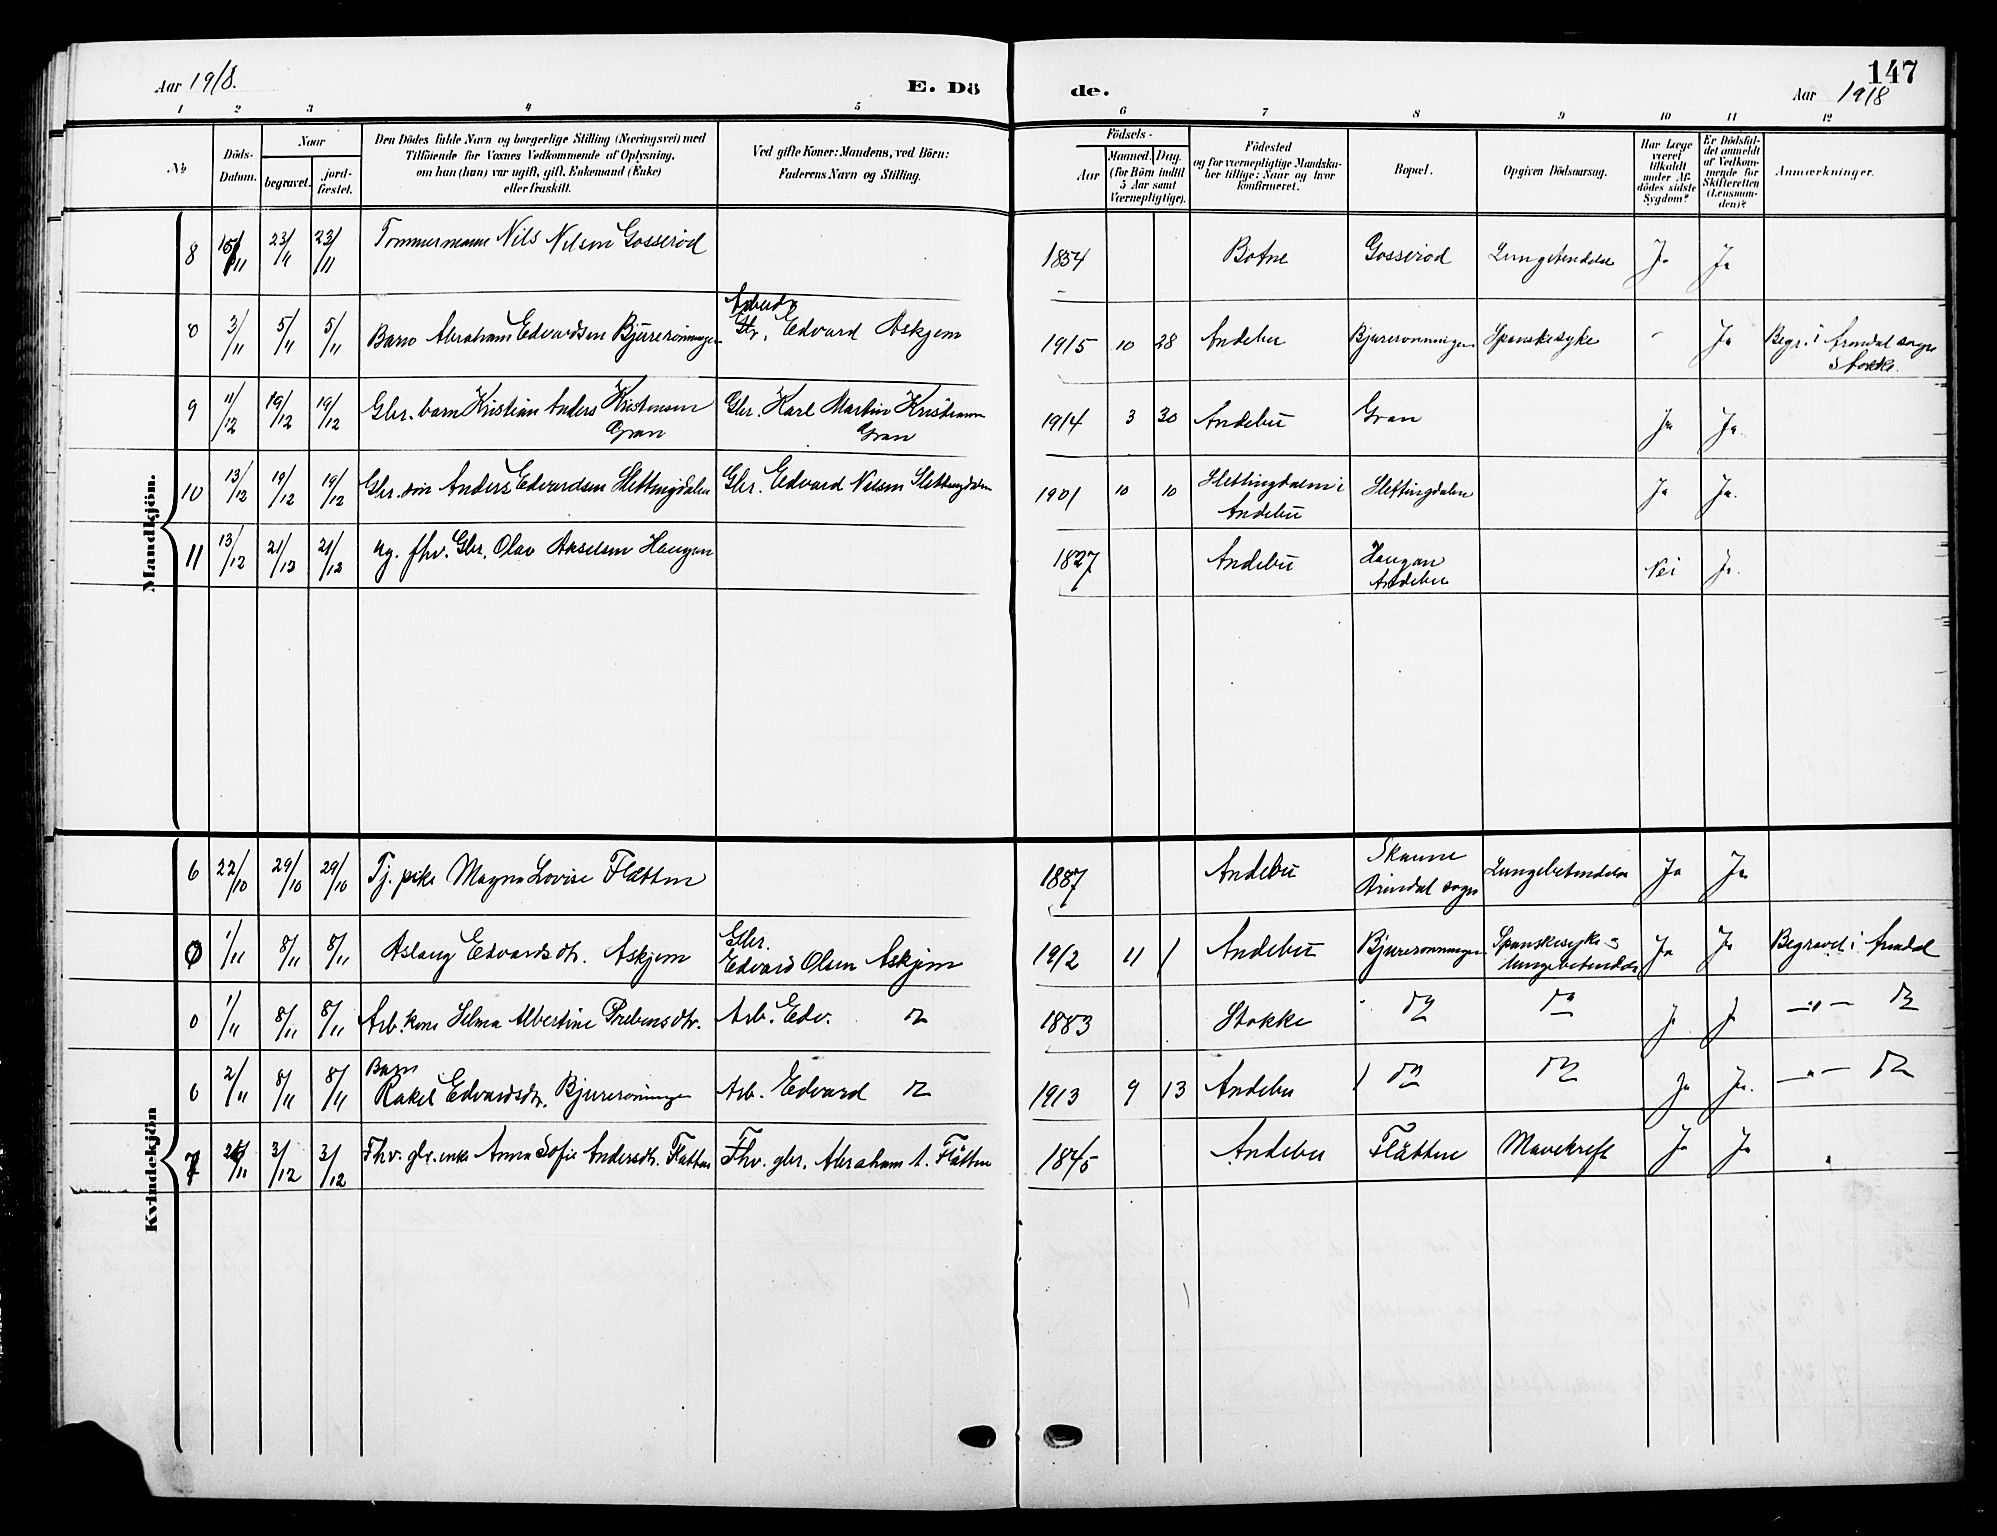 Aar 1918.
E. Dö
de.
147
Aar 1918
1 2 3 4 5 6 7 8 9 10 11 12
No
Döds-Datum.
Naar
begravet.
jord-fæstet.
Den Dödes fulde Navn og borgerlige Stilling (Næringsvei) med
Tilföiende for Voxnes Vedkommende af Oplysning,
om han (hun) var ugift, gift, Enkemand (Enke)
eller fraskilt.
Ved gifte Koner: Mandens, ved Börn:
Faderens Navn og Stilling.
Födsels-
Aar
Maaned. Dag.
(for Börn indtil
5 Aar samt
Værnepligtige).
Födested
og for værnepligtige Mandska-
ber tillige: Naar og hvor
konfirmeret.
Bopæl.
Opgiven Dödsaarsag.
Har Læge
været
tilkaldt
under Af-
dödes sidste
Sygdom?
Er Dödsfal-
det anmeldt
af Vedkom-
mende for
Skifteretten
(Lensman-
den)?
Anmærkninger.
Mandkjön.
8 15/11 23/11 23/11 Tømmermann Nils Nilsen Gosserød 1854 Botne Gosserød Lungebetendelse Ja Ja
0 3/11 5/11 5/11 Barn Abraham Edvardsen Bjurerønningen Arbeider Gbr. Edvard Askjem 1915 10 28 Andebu Bjurerønningen Spanskesyke - Ja Begr. i Arendal sogn
Stokke.
9 11/12 19/12 19/12 Gbr. barn Kristian Anders Kristensen Gran Gbr. Karl Martin Kristensen Gran 1914 3 30 Andebu Gran Ja Ja.
10 13/12 19/12 19/12 Gbr. søn Anders Edvardsen Slettingdalen Gbr. Edvard Nilsen Slettingdalen 1901 10 10 Slettingdalen i Andebu Slettingdalen Ja Ja.
11 13/12 21/12 21/12 ug. fhv. Gbr. Olav Akselsen Haugan 1827 Andebu Haugan Andebu Nei Ja.
Kvindekjön
6 22/10 29/10 29/10 Tj. pike Magna Lovise Flåtten 1887 Andebu Skaune sogn Lungebetendelse Ja Ja
0 1/11 8/11 8/11 Aslaug Edvardsdtr. Askjem Gbr. Edvard Olsen Askjem 1912 11 1 Andebu Bjurerønningen Spanskesyke - lungebetendelse Ja Ja Begravet i Arendal
0 1/11 8/11 8/11 Arb. kone Selma Albertine Prebensdtr. Arb. Edv. do 1883 Stokke do do Ja Ja -"- do
0 2/11 8/11 8/11 Barn Rakel Edvardsdtr. Bjurerønningen Arb. Edvard do 1913 9 13 Andebu do do Ja Ja. -"- do
7 26/11 3/12 3/12 Fhv. gbr. enke Anna Sofie Andersdtr. Flåtten Fhv. gbr. Abraham A. Flåtten 1845 Andebu Flåtten Mavekreft Ja Ja "